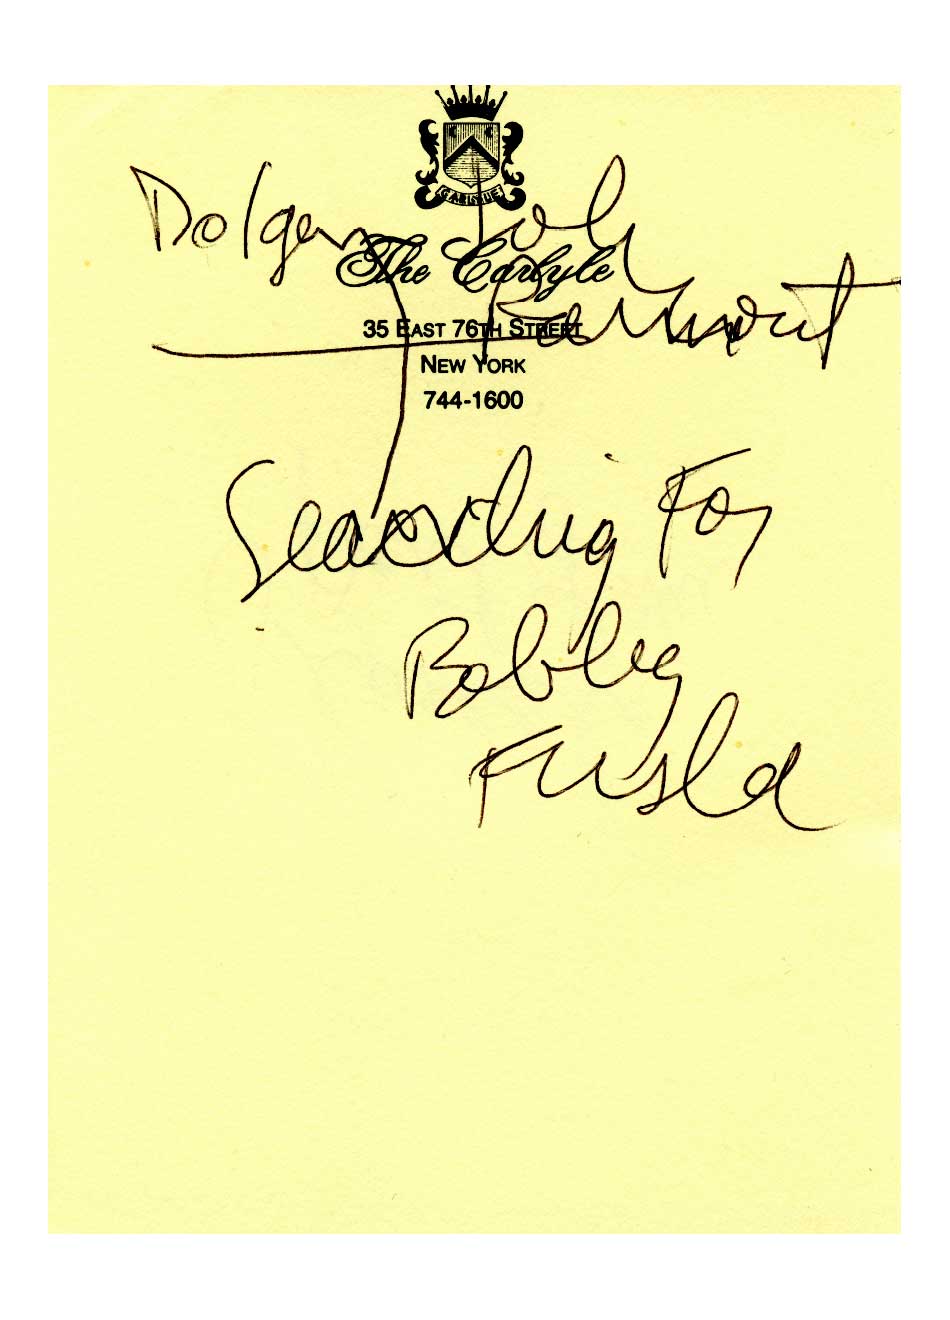 CARLYLE
Dolgen Job
The Carlyle
Paramount
35 EAST 76TH STREET
NEW YORK
744-1600
Searching For
Bobby
Fisher